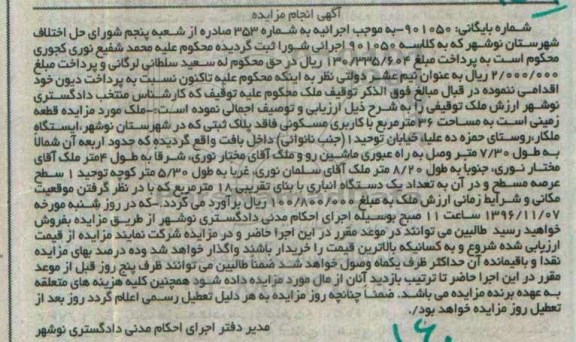 آگهی انجام مزایده
شماره بایگانی: ۹۰۱۰۵۰-به موجب اجرائیه به شماره ۳۵۳ صادره از شعبه پنجم شورای حل اختلاف
شهرستان نوشهر که به کلاسه ۹۰۱۰۵۰ اجرائی شورا ثبت گردیده محکوم علیه محمد شفیع نوری کجوری
محکوم است به پرداخت مبلغ ۱۳۰/۳۳۵/۶۰۴ ریال در حق محکوم له سعید سلطانی لرگانی و پرداخت مبلغ
۲/۰۰۰/۰۰۰ ریال به عنوان نیم عشر دولتی نظر به اینکه محکوم علیه تاکنون نسبت به پرداخت دیون خود
اقدامی ننموده در قبال مبالغ فوق الذکر توقیف ملک محکوم علیه توقیف که کارشناس منتخب دادگستری
نوشهر ارزش ملک توقیفی را به شرح ذیل ارزیابی و توصیف اجمالی نموده است:-ملک مورد مزایده قطعه
زمینی است به مساحت ۳۶ مترمربع با کاربری مسکونی فاقد پلاک ثبتی که در شهرستان نوشهر،ایستگاه
ملکار،روستای حمزه ده علیا، خیابان توحید ۱ (جنب نانوائی) داخل بافت واقع گردیده که حدود اربعه آن شمالا
به طول ۷/۳۰ متر وصل به راه عبوری ماشین رو و ملک آقای مختار نوری، شرقا به طول ۴متر ملک آقای
مختار نوری، جنوبا به طول ۸/۲۰ متر ملک آقای سلمان نوری، غربا به طول ۵/۳۰ متر کوچه توحید ۱ سطح
عرصه مسطح و در آن به تعداد یک دستگاه انباری با بنای تقریبی ۱۸ مترمربع که با در نظر گرفتن موقعیت
مکانی و شرایط زمانی ارزش ملک به مبلغ ۱۰۰/۸۰۰/۰۰۰ ریال برآورد می گردد.-که در روز شنبه مورخه
۱۳۹۶/۱۱/۰۷ ساعت ۱۱ صبح بوسیله اجرای احکام مدنی دادگستری نوشهر از طریق مزایده بفروش
خواهید رسید طالبین می توانند در موعد مقرر در این اجرا حاضر و در مزایده شرکت نمایند مزایده از قیمت
ارزیابی شده شروع و به کسانیکه بالاترین قیمت را خریدار باشند واگذار خواهد شد وده درصد بهای مزایده
نقدا و باقیمانده آن حداکثر ظرف یکماه وصول خواهد شد ضمنا طالبین می توانند ظرف پنج روز قبل از موعد
مقرر در این اجرا حاضر تا ترتیب بازدید آنان از مال مورد مزایده داده شود همچنین کلیه هزینه های متعلقه
به عهده برنده مزایده می باشد. ضمنا چنانچه روز مزایده به هر دلیل تعطیل رسمی اعلام گردد روز بعد از
تعطیل روز مزایده خواهد بود/.
مدیر دفتر اجرای احکام مدنی دادگستری نوشهر